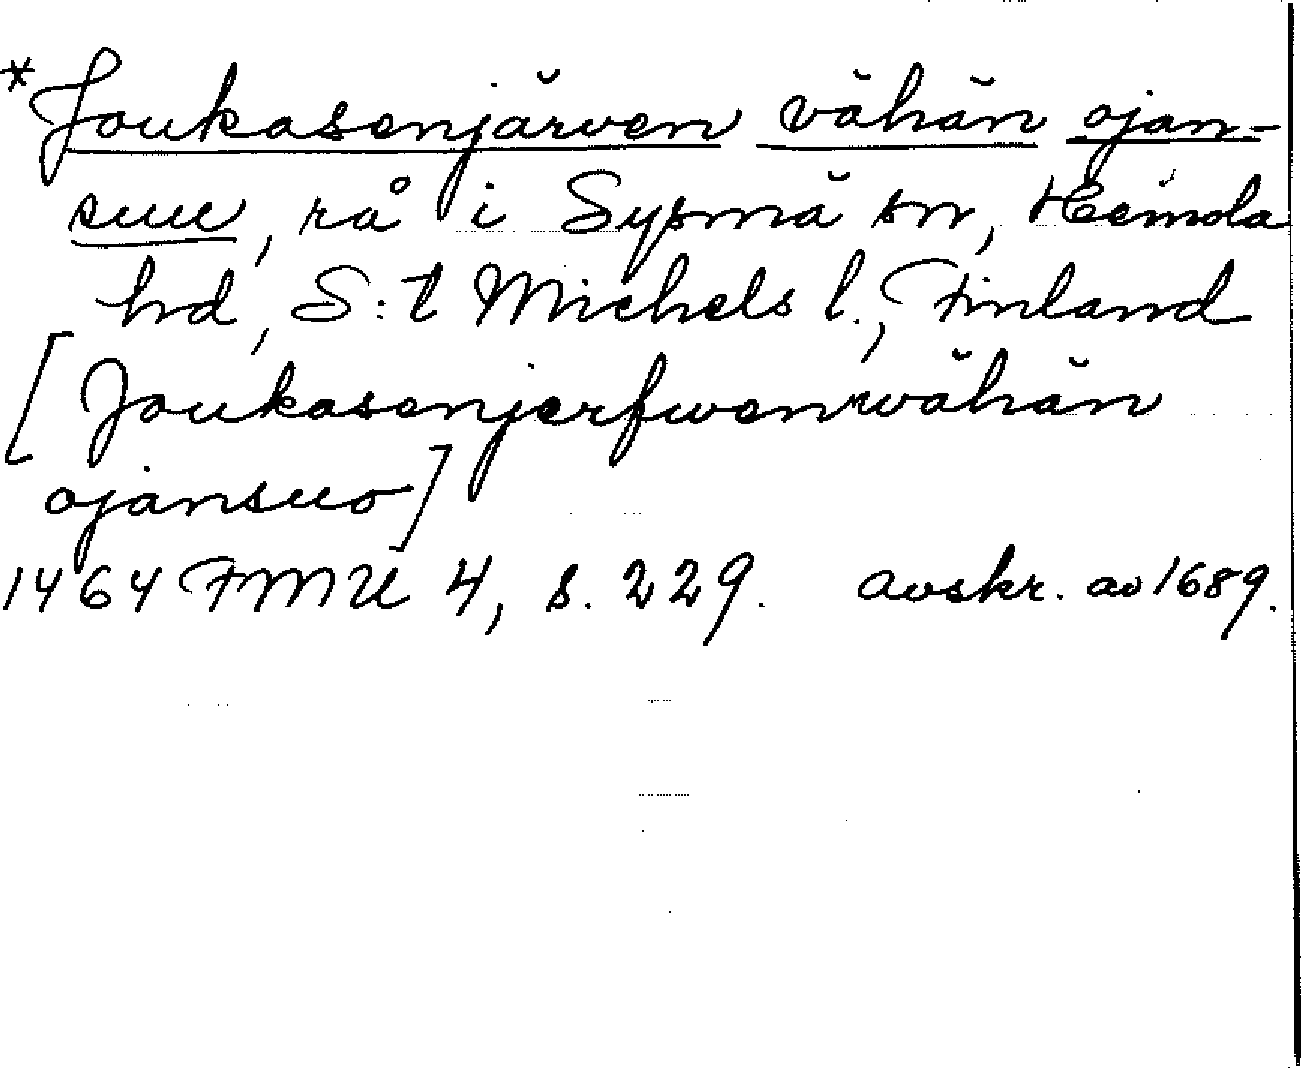 *Joukasenjärven vähän ojan-
suu, rå i Sysmä sn, Heinola
hd, S:t Michels l., Finland
[Joukasenjerfwenwähän
ojansuo]
1464 FMU 4, s. 229. Avskr. av 1689.